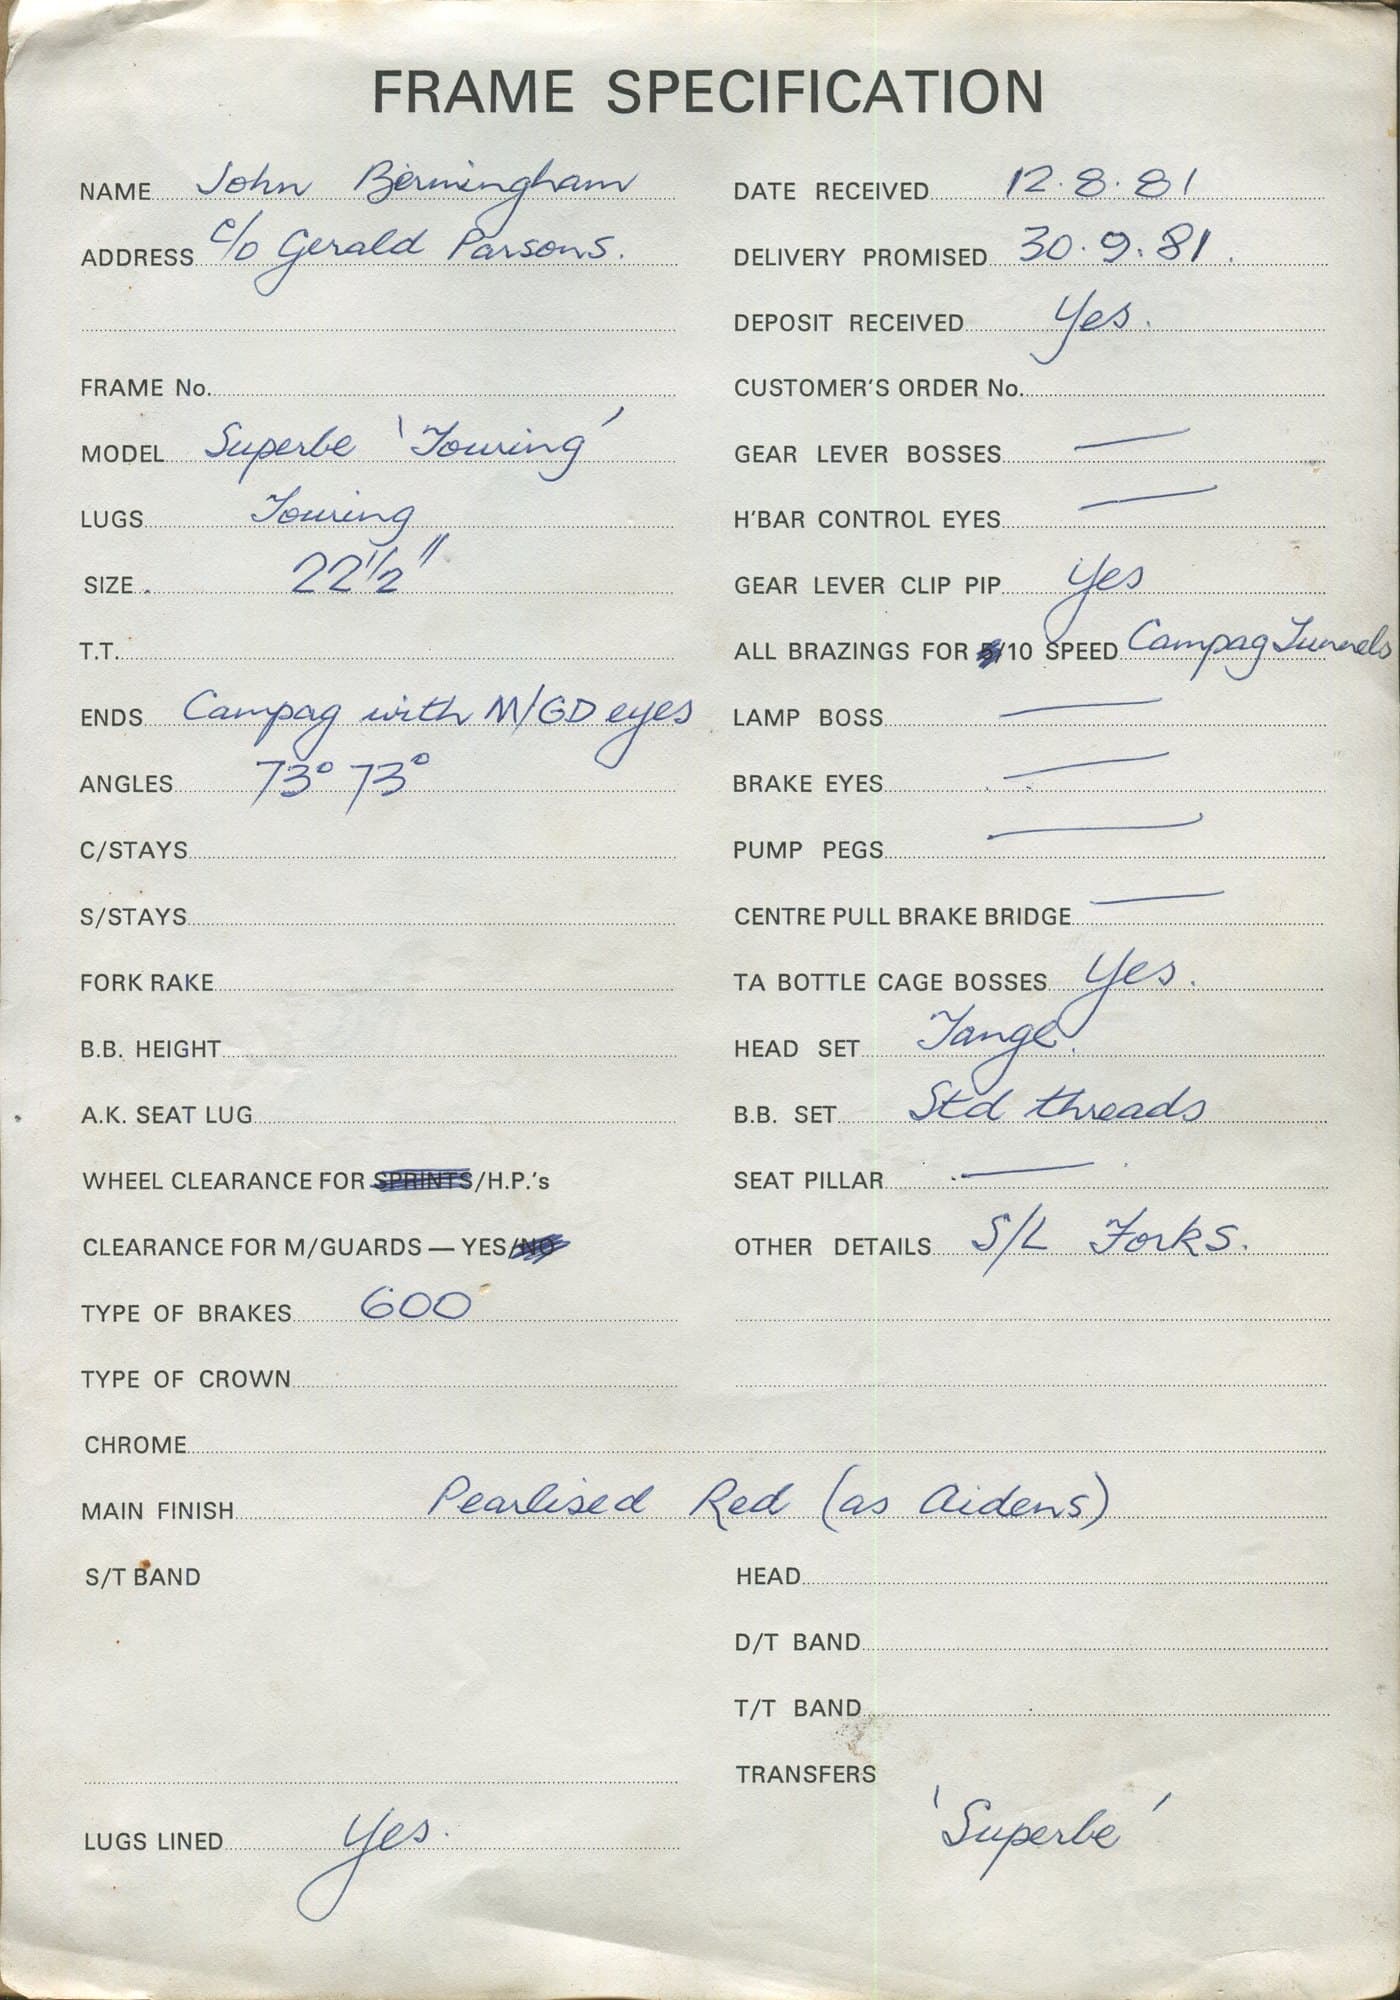 FRAME SPECIFICATION
NAME John Bermingham
ADDRESS c/o Gerald Parsons.
FRAME No.
MODEL Superbe 'Touring'
LUGS Touring
SIZE 22 1/2"
T.T.
ENDS Campag with M/GD eyes
ANGLES 73° 73°
C/STAYS
S/STAYS
FORK RAKE
B.B. HEIGHT
A.K. SEAT LUG
WHEEL CLEARANCE FOR SPRINTS/H.P.'s
CLEARANCE FOR M/GUARDS — YES/NO
TYPE OF BRAKES 600
TYPE OF CROWN
DATE RECEIVED 12.8.81
DELIVERY PROMISED 30.9.81.
DEPOSIT RECEIVED Yes.
CUSTOMER'S ORDER No.
GEAR LEVER BOSSES —
H'BAR CONTROL EYES —
GEAR LEVER CLIP PIP Yes
ALL BRAZINGS FOR 5/10 SPEED Campag Tunnels
LAMP BOSS —
BRAKE EYES —
PUMP PEGS —
CENTRE PULL BRAKE BRIDGE —
TA BOTTLE CAGE BOSSES Yes.
HEAD SET Tange.
B.B. SET Std threads
SEAT PILLAR —
OTHER DETAILS S/L Forks.
CHROME
MAIN FINISH Pearlised Red (as Aidens)
S/T BAND
LUGS LINED Yes.
HEAD
D/T BAND
T/T BAND
TRANSFERS
'Superbe'